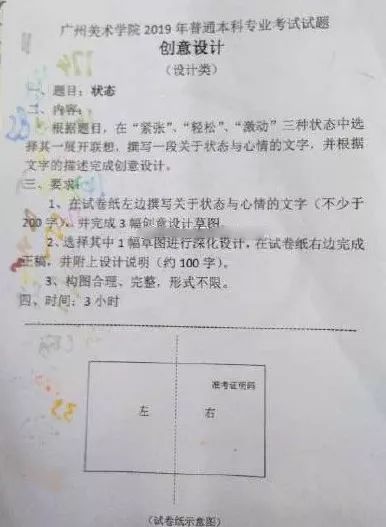 广州美术学院 2019 年普通本科专业考试试题
创意设计
（设计类）
一、题目：状态
二、内容：
根据题目，在“紧张”、“轻松”、“激动”三种状态中选
择其一展开联想，撰写一段关于状态与心情的文字，并根据
文字的描述完成创意设计。
三、要求：
1、在试卷纸左边撰写关于状态与心情的文字（不少于
200 字），并完成 3 幅创意设计草图。
2、选择其中 1 幅草图进行深化设计，在试卷纸右边完成
正稿，并附上设计说明（约 100 字）。
3、构图合理、完整，形式不限。
四、时间：3 小时
准考证号码
左 右
（试卷纸示意图）